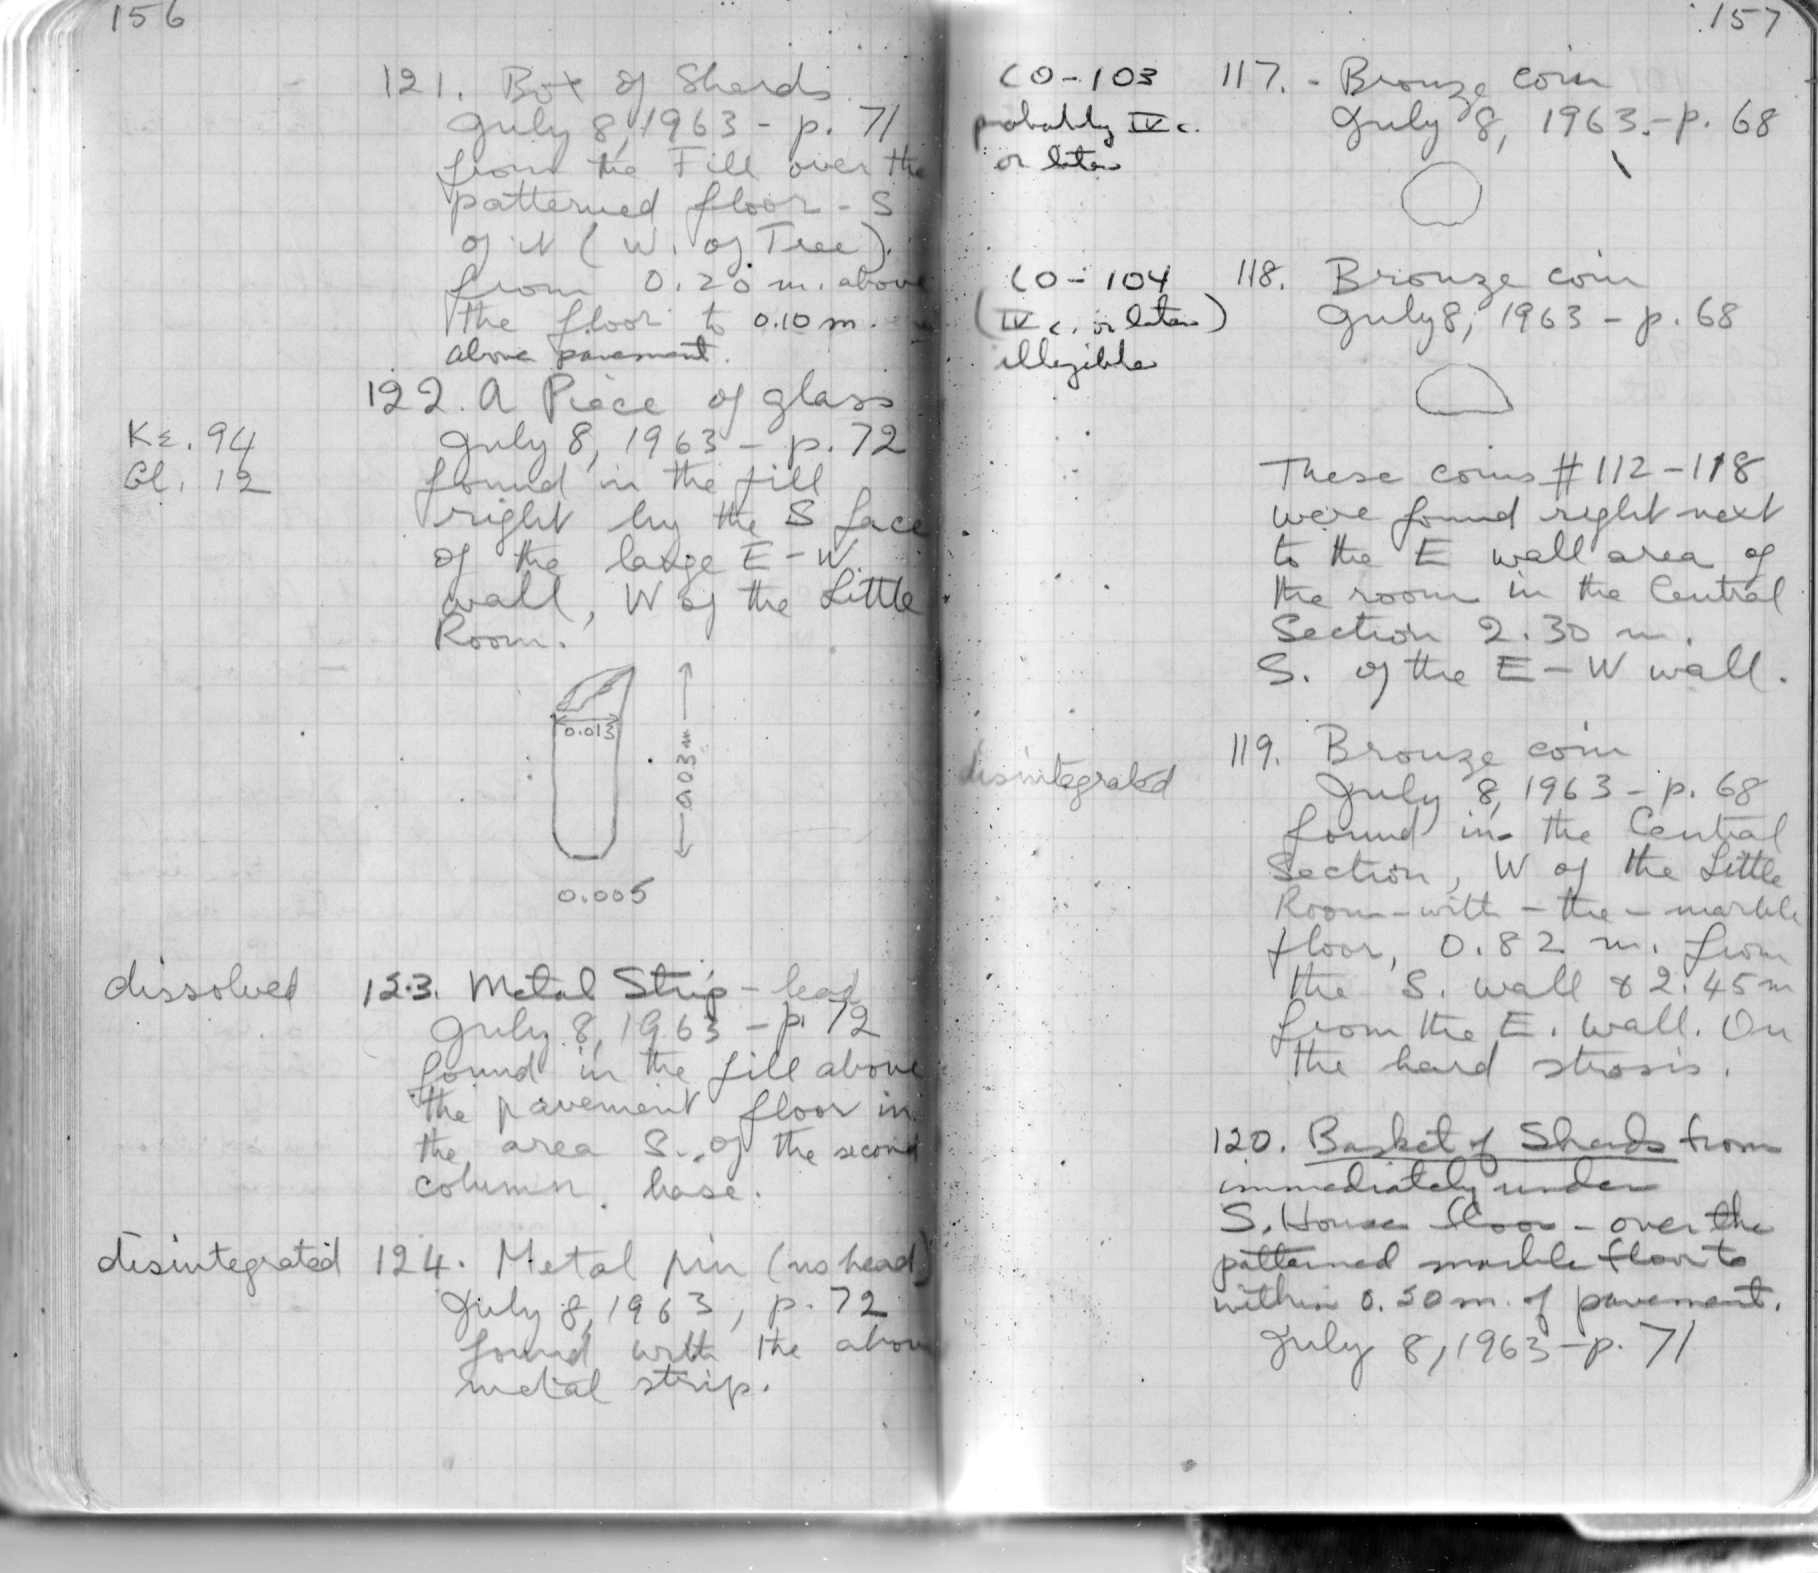 156
121. Box of Sherds
July 8, 1963 - p. 71
from the Fill over the
patterned floor - S
of it (W. of Tree).
from 0.20 m. above
the floor to 0.10 m.
above pavement.
122. A Piece of glass
KΣ. 94
July 8, 1963 - p. 72
Gl. 12
found in the fill
right by the S face
of the large E-W.
wall, W of the Little
Room.
0.013
0.03 m
0.005
dissolved
123. Metal Strip - lead
July 8, 1963 - p. 72
found in the fill above
the pavement floor in
the area S. of the second
column base.
disintegrated
124. Metal pin (no head)
July 8, 1963, p. 72
found with the above
metal strip.
157
CO-103
probably IV c.
or later
117. - Bronze coin
July 8, 1963. - p. 68
CO-104
(IV c. or later)
illegible
118. Bronze coin
July 8, 1963 - p. 68
These coins # 112-118
were found right next
to the E wall area of
the room in the Central
Section 2.30 m.
S. of the E-W wall.
disintegrated
119. Bronze coin
July 8, 1963 - p. 68
found in the Central
Section, W of the Little
Room-with-the-marble
floor, 0.82 m. from
the S. wall & 2.45 m
from the E. wall. On
the hard strosis.
120. Basket of Sherds from
immediately under
S. House floor - over the
patterned marble floor to
within 0.20 m. of pavement.
July 8, 1963 - p. 71